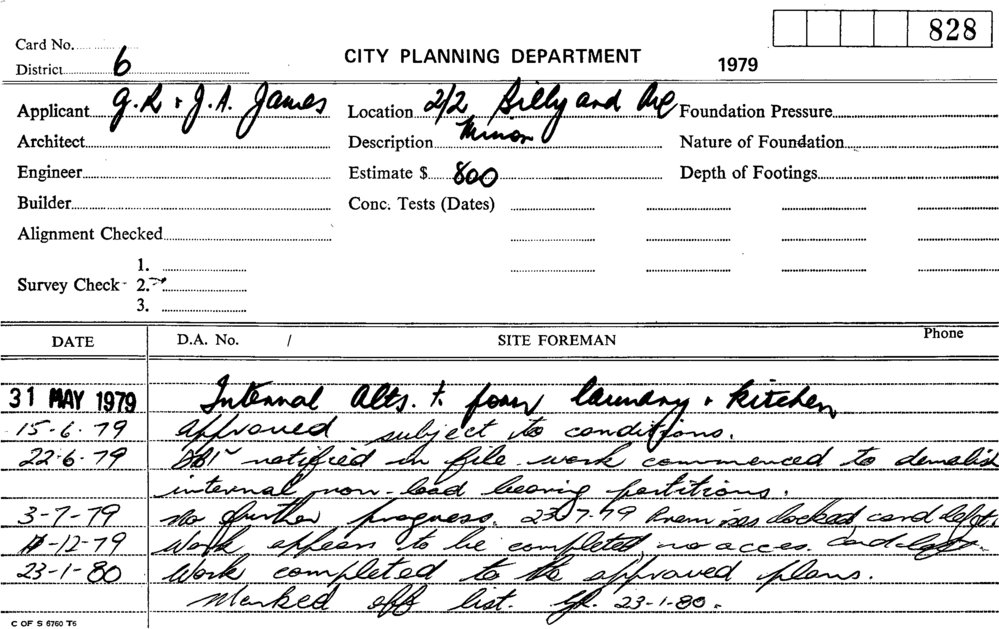 828
Card No.
CITY PLANNING DEPARTMENT 1979
District 6
Applicant G.R & J.A. James Location 2/2 Billyard Ave Foundation Pressure
Architect Description Minor Nature of Foundation
Engineer Estimate $ 800 Depth of Footings
Builder Conc. Tests (Dates)
Alignment Checked
1.
Survey Check 2.
3.
DATE D.A. No. / SITE FOREMAN Phone
31 MAY 1979 Internal Alts. t. form laundry & kitchen
15-6-79 approved subject to conditions.
22-6-79 notified in file. work commenced to demolish
internal non-load bearing partitions.
3-7-79 no further progress. 23-7-79 Premises locked, card left.
-12-79 Work appears to be completed, no acces. Card left.
23-1-80 Work completed to the approved plans.
Marked off list. 23-1-80.
C OF S 6760 T6